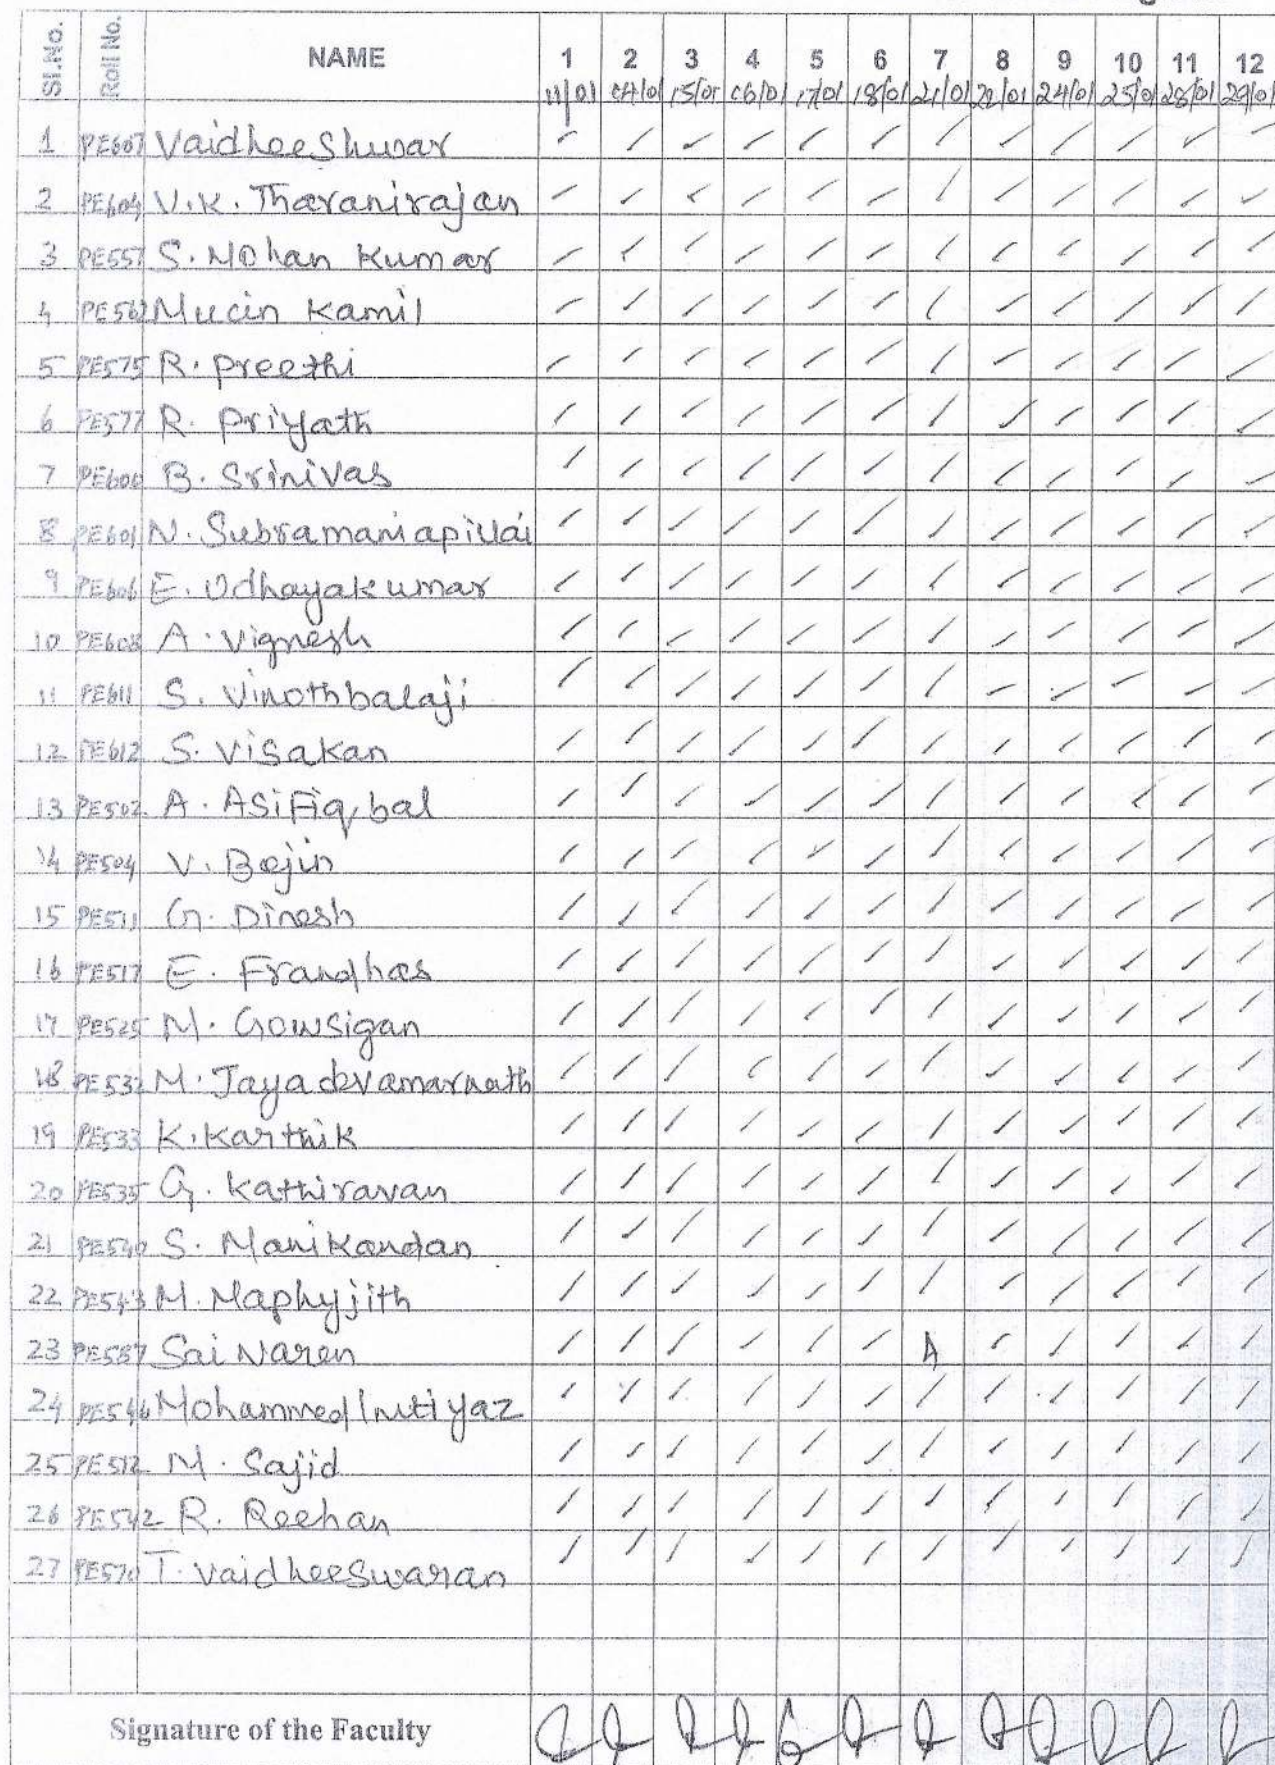 Sl.No. Roll No. NAME 1 2 3 4 5 6 7 8 9 10 11 12
11/01 04/01 15/01 06/01 17/01 18/01 21/01 22/01 24/01 25/01 28/01 29/01
1 PE607 Vaidheeshwar
2 PE604 V.K. Tharanirajan
3 PE557 S. Mohan Kumar
4 PE562 Mucin Kamil
5 PE575 R. Preethi
6 PE577 R. Priyath
7 PE600 B. Srinivas
8 PE601 N. Subramaniapillai
9 PE606 E. Udhayakumar
10 PE608 A. Vignesh
11 PE611 S. Vinothbalaji
12 PE612 S. Visakan
13 PE502 A. Asifiqbal
14 PE504 V. Bejin
15 PE511 G. Dinesh
16 PE517 E. Frandhas
17 PE525 M. Gowsigan
18 PE532 M. Jayadevamarnath
19 PE533 K. Karthik
20 PE535 G. Kathiravan
21 PE540 S. Manikandan
22 PE543 M. Maphyjith
23 PE587 Sai Naren A
24 PE546 Mohammed Imtiyaz
25 PE512 M. Sajid
26 PE542 R. Reehan
27 PE570 T. Vaidheeswaran
Signature of the Faculty